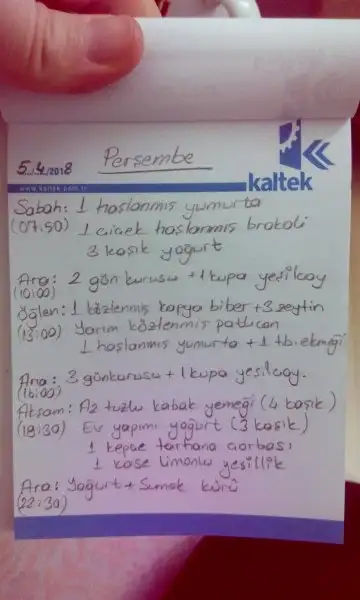 5.4.2018 Perşembe
kaltek
www.kaltek.com.tr
Sabah: 1 haşlanmış yumurta
(07:50) 1 çiçek haşlanmış brokoli
3 kaşık yoğurt
Ara: 2 gün kurusu + 1 kupa yeşilçay
(10:00)
Öğlen: 1 közlenmiş kapya biber + 3 zeytin
(13:00) Yarım közlenmiş patlıcan
1 haşlanmış yumurta + 1 tb. ekmeği
Ara: 3 günkurusu + 1 kupa yeşilçay.
(16:00)
Akşam: Az tuzlu kabak yemeği (4 kaşık)
(19:30) Ev yapımı yoğurt (3 kaşık)
1 kepçe tarhana çorbası
1 kase limonlu yeşillik
Ara: Yoğurt + Sumak kürü
(22:30)